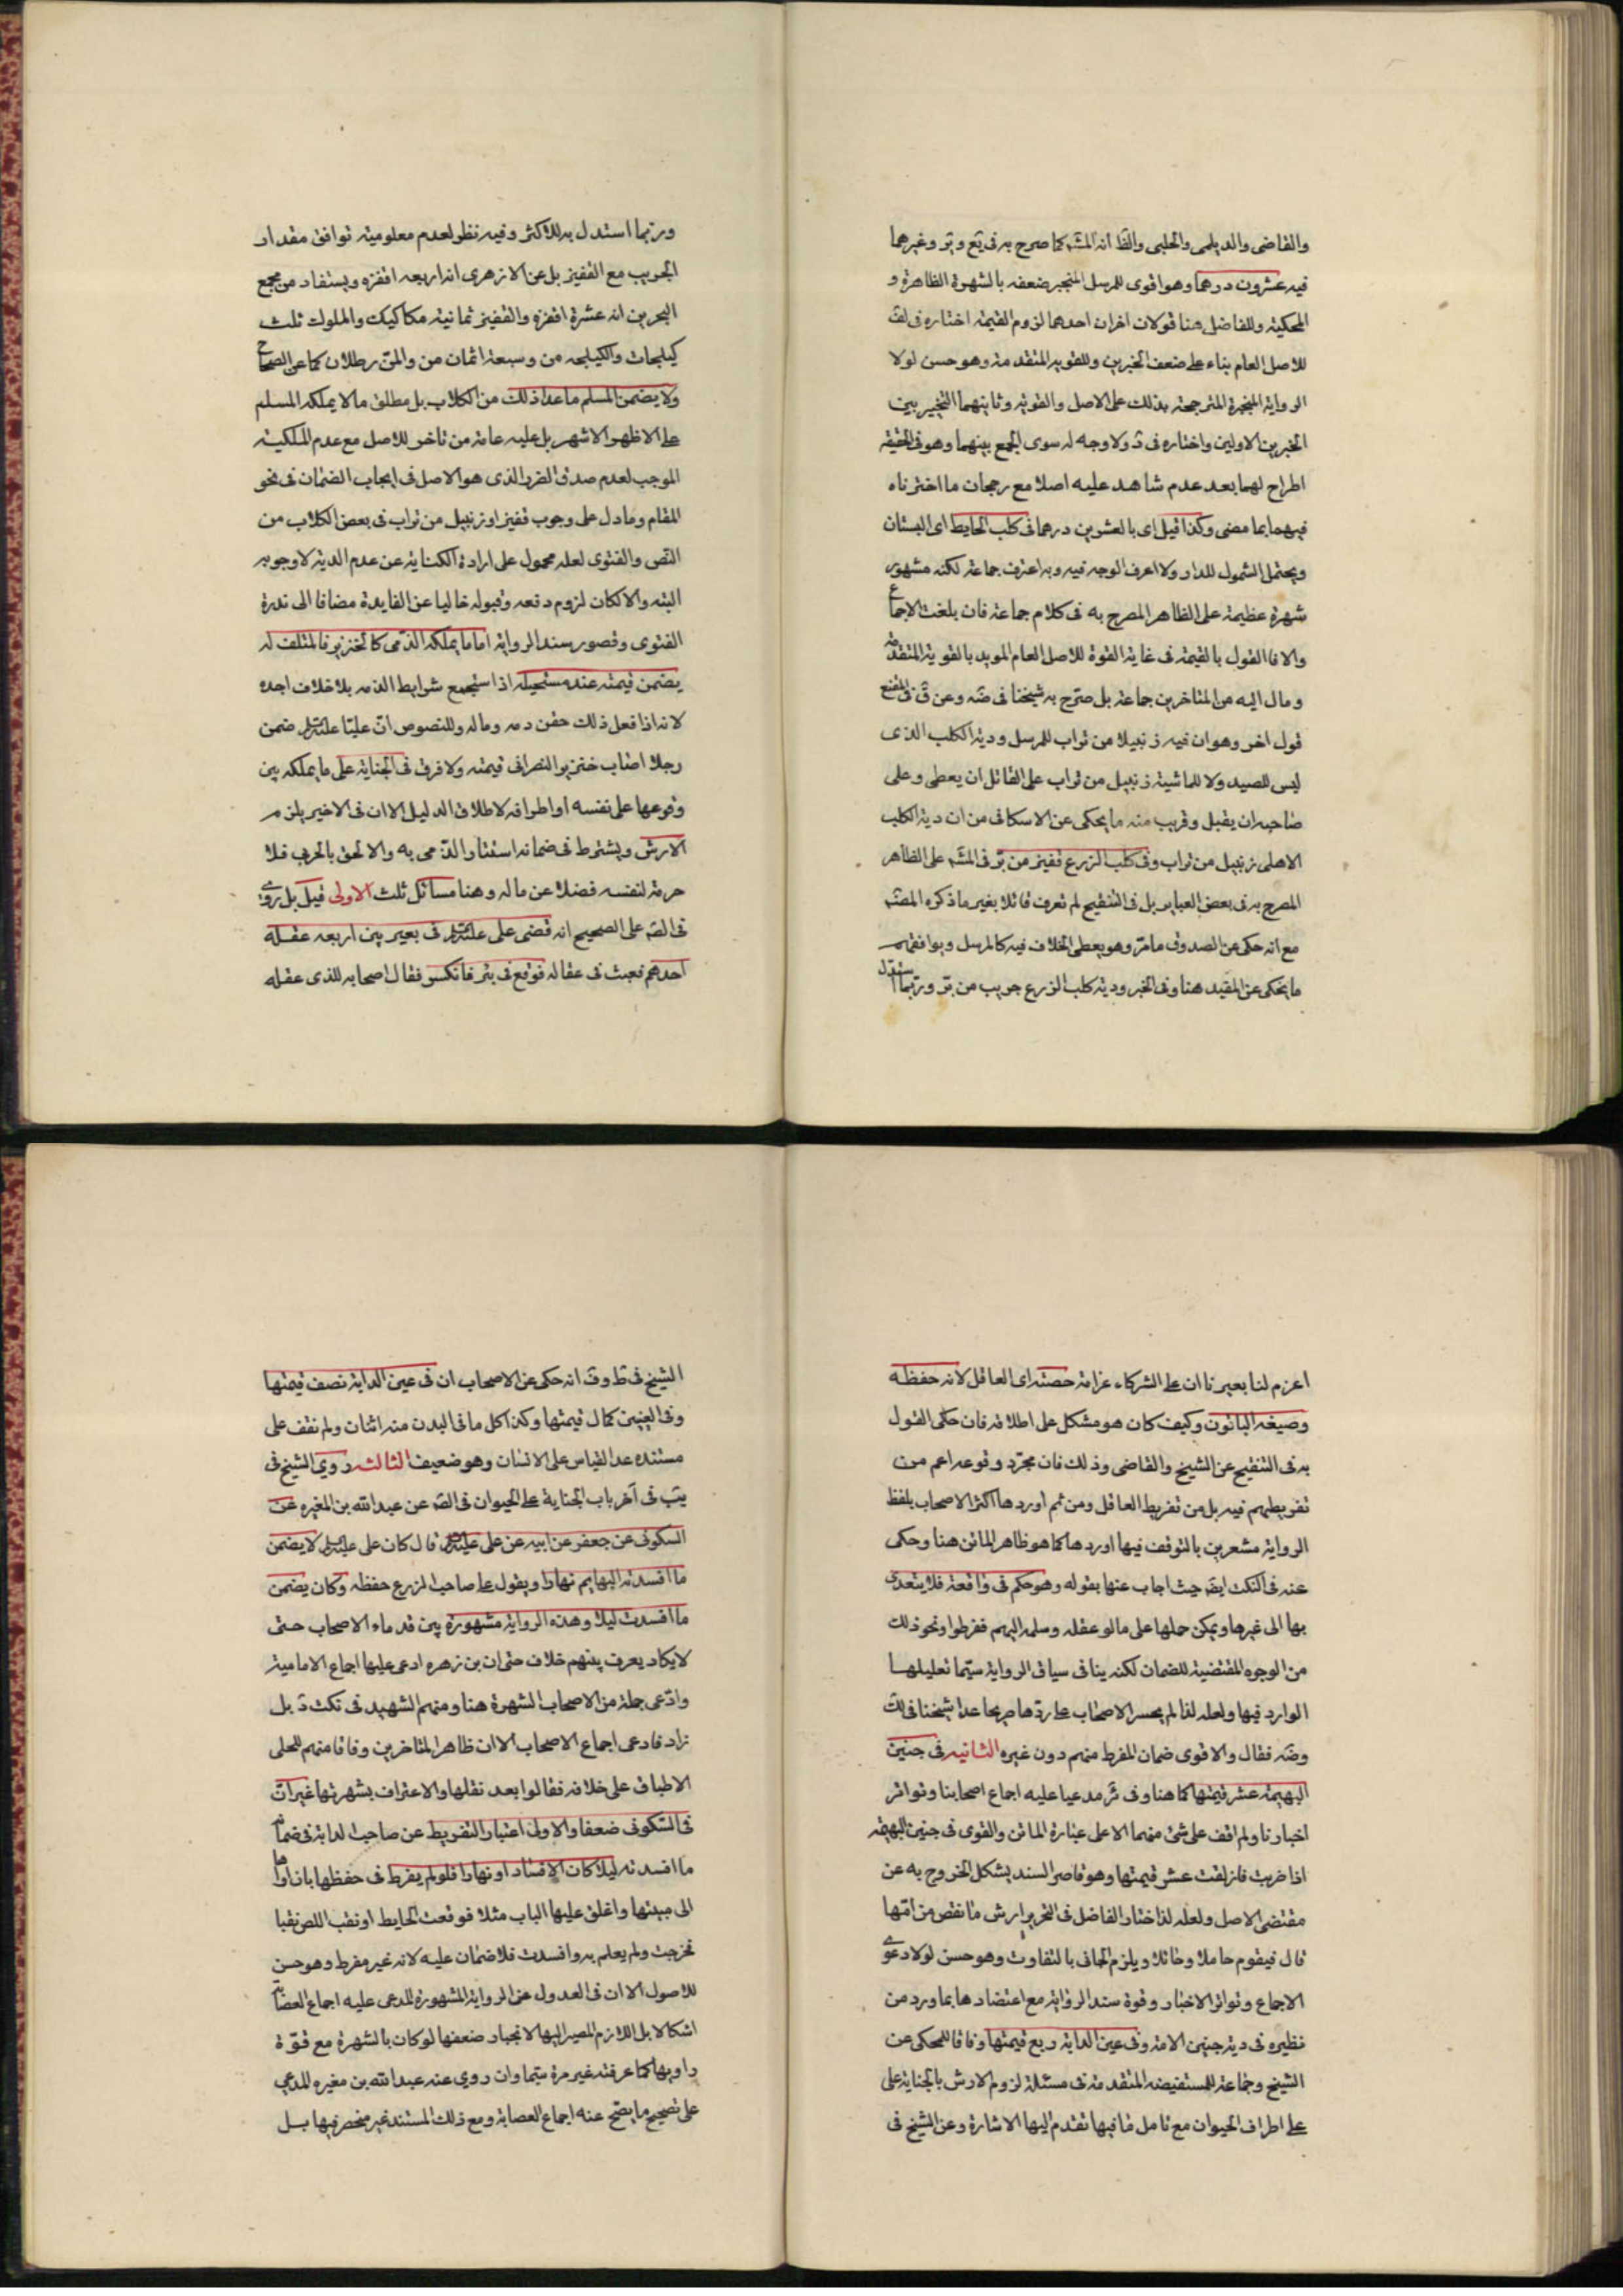 والقاضى والديلمى والحلبى والظ انه المشه كما صرح به فى يع وير وغيرهما
فيه عشرون درهما وهو اقوى للمرسل المنجبر ضعفه بالشهرة الظاهرة و
المحكية وللفاضل هنا قولان اخران احدهما لزوم القيمة اختاره فى لف
للاصل العام بناء على ضعف الخبرين وللقوية المتقدمة وهو حسن لولا
الرواية المنجبرة المترجحة بذلك على الاصل والقوية وثانيهما التخيير بين
الخبرين الاولين واختاره فى د ولا وجه له سوى الجمع بينهما وهو فى الحقيقة
اطراح لهما بعد عدم شاهد عليه اصلا مع رجحان ما اخترناه
فيهما بما مضى وكذا قيل اى بالعشرين درهما فى كلب الحايط اى البستان
ويحتمل الشمول للدار ولا اعرف الوجه فيه وبه اعترف جماعة لكنه مشهور
شهرة عظيمة على الظاهر المصرح به فى كلام جماعة فان بلغت الاجماع
والا فالقول بالقيمة فى غاية القوة للاصل العام المويد بالقوية المتقدمة
ومال اليه من المتاخرين جماعة بل صرح به شيخنا فى ضه وعن ق فى المقنع
قول اخر وهو ان فيه زنبيلا من تراب للمرسل ودية الكلب الذى
ليس للصيد ولا للماشية زنبيل من تراب على القاتل ان يعطى وعلى
صاحبه ان يقبل وقريب منه ما يحكى عن الاسكافى من ان دية الكلب
الاهلى زنبيل من تراب وفى كلب الزرع قفيز من بر فى المشه على الظاهر
المصرح به فى بعض العباير بل فى التنقيح لم نعرف قائلا بغير ما ذكره المصنه
مع انه حكى عن الصدوق ما مر وهو يعطى الخلاف فيه كالمرسل ويوافقهم
ما يحكى عن المفيد هنا وفى الخبر ودية كلب الزرع جريب من بر وربما استدل
وربما استدل به للاكثر وفيه نظر لعدم معلومية توافق مقدار
الجريب مع القفيز بل عن الازهرى انه اربعه اقفزه ويستفاد من مجمع
البحرين انه عشرة اقفزه والقفيز ثمانية مكاكيك والملوك ثلث
كيلجات والكيلجه من وسبعة اثمان من والمن رطلان كما عن الصحاح
ولا يضمن المسلم ما عدا ذلك من الكلاب بل مطلق ما لا يملكه المسلم
على الاظهر الاشهر بل عليه عامة من تاخر للاصل مع عدم الملكية
الموجب لعدم صدق الضرر الذى هو الاصل فى ايجاب الضمان فى نحو
المقام وما دل على وجوب قفيز او زنبيل من تراب فى بعض الكلاب من
النص والفتوى لعله محمول على ارادة الكناية عن عدم الدية لا وجوبه
البته والا لكان لزوم دفعه وقبوله خاليا عن الفايدة مضافا الى ندرة
الفتوى وقصور سند الرواية اما ما يملكه الذمى كالخنزير فالمتلف له
يضمن قيمته عند مستحيله اذا استجمع شرايط الذمه بلا خلاف اجده
لانه اذا فعل ذلك حقن دمه وماله وللنصوص ان عليا عليه السلام ضمن
رجلا اصاب خنزير النصرانى قيمته ولا فرق فى الجناية على ما يملكه بين
وقوعها على نفسه او اطرافه لاطلاق الدليل الا ان فى الاخير يلزم
الارش ويشترط فى ضمانه استتار الذمى به والا لحق بالحربى فلا
حرمة لنفسه فضلا عن ماله وهنا مسائل ثلث الاولى قيل بل روى
فى القه على الصحيح انه قضى على عليه السلام فى بعير بين اربعه عقله
احدهم فعبث فى عقاله فوقع فى بئر فانكسر فقال اصحابه للذى عقله
اغرم لنا بعيرنا ان على الشركاء غرامة حصته اى العاقل لانه حفظه
وضيعه الباقون وكيف كان هو مشكل على اطلاقه فان حكى القول
به فى التنقيح عن الشيخ والقاضى وذلك فان مجرد وقوعه اعم من
تفريطهم فيه بل من تفريط العاقل ومن ثم اوردها اكثر الاصحاب بلفظ
الرواية مشعرين بالتوقف فيها اوردها كما هو ظاهر الماتن هنا وحكى
عنه فى النكت ايضه حيث اجاب عنها بقوله وهو حكم فى واقعة فلا يتعدى
بها الى غيرها ويمكن حملها على ما لو عقله وسلمه اليهم ففرطوا ونحو ذلك
من الوجوه المقتضية للضمان لكنه ينافى سياق الرواية سيما تعليلها
الوارد فيها ولعله لذا لم يجسر الاصحاب على ردها صريحا عدا شيخنا فى لك
وضه فقال والاقوى ضمان المفرط منهم دون غيره الثانيه فى جنين
البهيمة عشر قيمتها كما هنا وفى ئر مدعيا عليه اجماع اصحابنا وتواتر
اخبارنا ولم اقف على شئ منهما الا على عبارة الماتن والقوى فى جنين البهيمة
اذا ضربت فازلقت عشر قيمتها وهو قاصر السند يشكل الخروج به عن
مقتضى الاصل ولعله لذا اختار الفاضل فى التحرير ارش ما نقص من امها
قال فيقوم حاملا وحائلا ويلزم الجانى بالتفاوت وهو حسن لولا دعوى
الاجماع وتواتر الاخبار وقوة سند الرواية مع اعتضادها بما ورد من
نظيره فى دية جنين الامة وفى عين الدابة ربع قيمتها وفاقا للمحكى عن
الشيخ وجماعة للمستفيضه المتقدمة فى مسئلة لزوم الارش بالجناية على
على اطراف الحيوان مع تامل ما فيها تقدم اليها الاشارة وعن الشيخ فى
الشيخ فى ط وف انه حكى عن الاصحاب ان فى عين الدابة نصف قيمتها
وفى العينين كمال قيمتها وكذا كل ما فى البدن منه اثنان ولم نقف على
مستنده عدا القياس على الانسان وهو ضعيف الثالثه روى الشيخ فى
يب فى آخر باب الجناية على الحيوان فى القه عن عبد الله بن المغيره عن
السكونى عن جعفر عن ابيه عن على عليه السلام قال كان على عليه السلام لا يضمن
ما افسدته البهايم نهارا ويقول على صاحب الزرع حفظه وكان يضمن
ما افسدت ليلا وهذه الرواية مشهورة بين قدماء الاصحاب حتى
لا يكاد يعرف بينهم خلاف حتى ان بن زهره ادعى عليها اجماع الامامية
وادعى جملة من الاصحاب الشهرة هنا ومنهم الشهيد فى نكت د بل
زاد فادعى اجماع الاصحاب الا ان ظاهر المتاخرين وفاقا منهم للحلى
الاطباق على خلافه فقالوا بعد نقلها والاعتراف بشهرتها غير ان
فى السكونى ضعفا والاولى اعتبار التفريط عن صاحب الدابة فى ضمان
ما افسدته ليلا كان الافساد او نهارا فلو لم يفرط فى حفظها بان اواها
الى مبيتها واغلق عليها الباب مثلا فوقعت الحايط او نقب اللص نقبا
فخرجت ولم يعلم به وافسدت فلا ضمان عليه لانه غير مفرط وهو حسن
للاصول الا ان فى العدول عن الرواية المشهورة المدعى عليه اجماع العصابة
اشكالا بل اللازم المصير اليها لانجبار ضعفها لو كان بالشهرة مع قوة
راويها كما عرفته غير مرة سيما وان روى عنه عبد الله بن مغيره المدعى
على تصحيح ما يصح عنه اجماع العصابة ومع ذلك المستند غير منحصر فيها بل